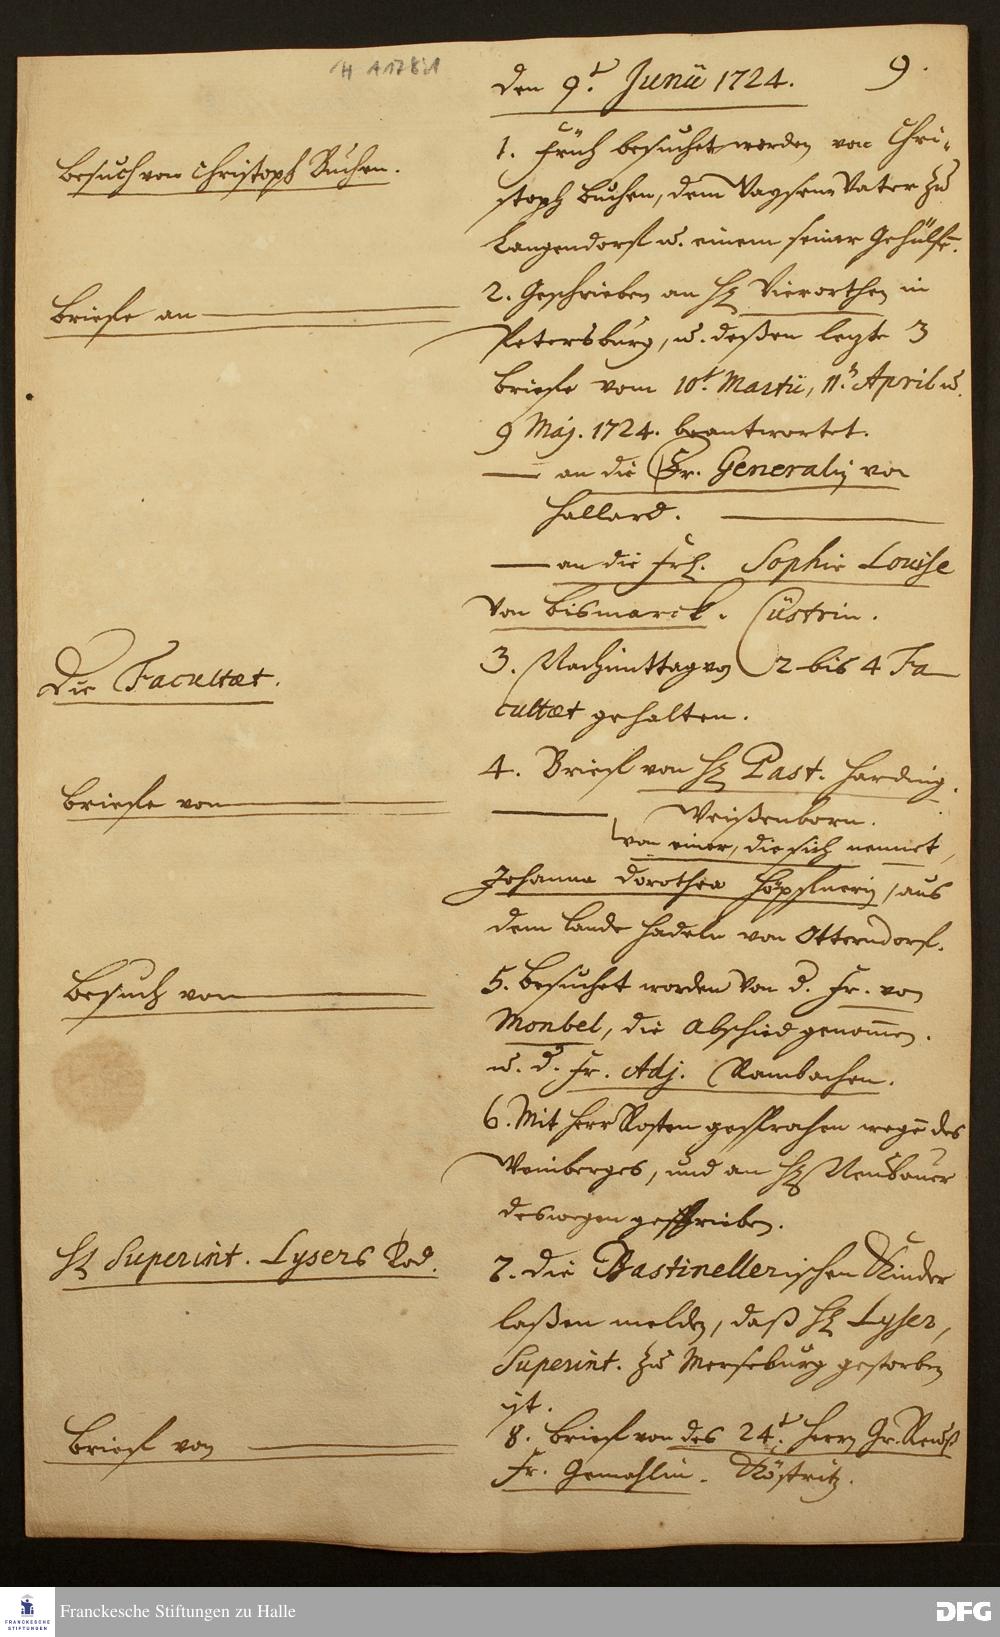 H A178:1
9.
den 9.t Junii 1724.
Besuch von Christoph Buchen.
1. Früh besuchet worden von Chri-
stoph Buchen, dem Waysen Vater zu
Langendorf u. einem seiner Gehülfē.
Briefe an
2. Geschrieben an H. Vierorthen in
Petersburg, u. deßen letzte 3
Briefe vom 10.t Martii, 11.t April u.
9 Maj. 1724. beantwortet.
— an die Fr. Generalin von
Hallard.
— an die Frl. Sophie Louise
von Bismarck. Cüstrin.
Die Facultæt.
3. Nachmittag von 2 bis 4 Fa
cultæt gehalten.
Briefe von
4. Brief von H. Past. Harding.
Weißenborn.
von einer, die sich nennet,
Johanna Dorothea Höpfnerin, aus
dem Lande Hadeln von Otterndorf.
Besuch von
5. Besuchet worden von d. Fr. von
Monbel, die Abschied genom̄en.
u. d. Fr. Adj. Rambachen.
6. Mit Herr Rosten gesprochen wegē des
Weinberges, und an H. Neubauer
deswegen geschrieben.
H. Superint. Lysers Tod.
7. Die Bastinellerischen Kinder
laßen melden, daß H. Lyser,
Superint. zu Merseburg gestorben
ist.
Brief von
8. Brief von des 24.t Herrn Gr. Reuß
Fr. Gemahlin. Köstritz.
FRANCKESCHE
STIFTUNGEN
Franckesche Stiftungen zu Halle
DFG